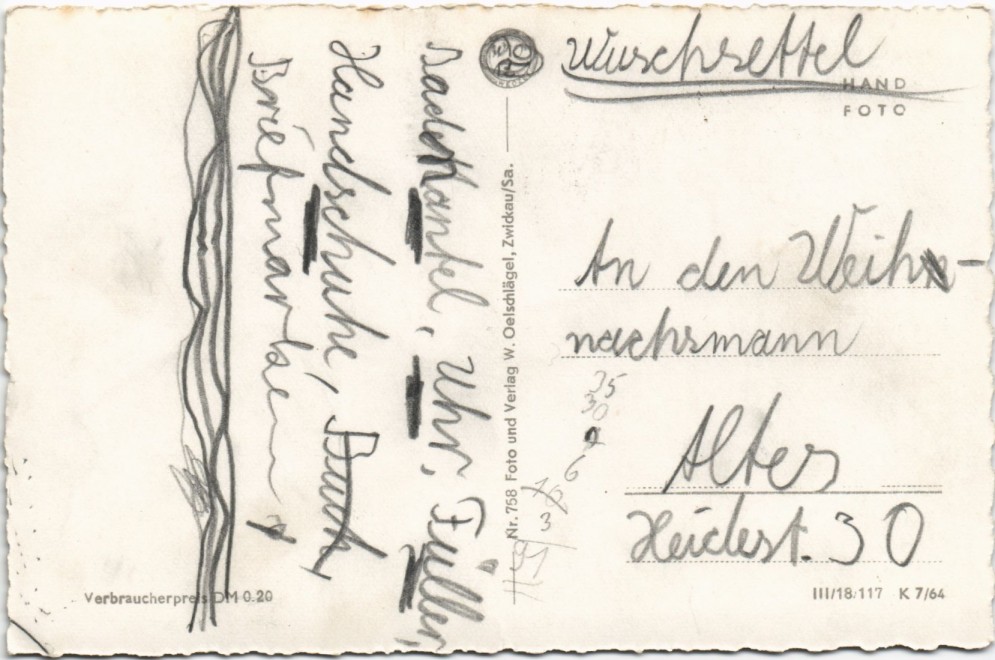 Wuschsettel
HAND
FOTO
An den Weih-
nachsmann
Alter
Heidest. 30
Bademantel, Uhr, Füller,
Handschuhe, Buch,
Briefmarken
Nr. 758 Foto und Verlag W. Oelschlägel, Zwickau/Sa.
35
30
6
16
3
Verbraucherpreis DM 0.20
III/18/117 K 7/64